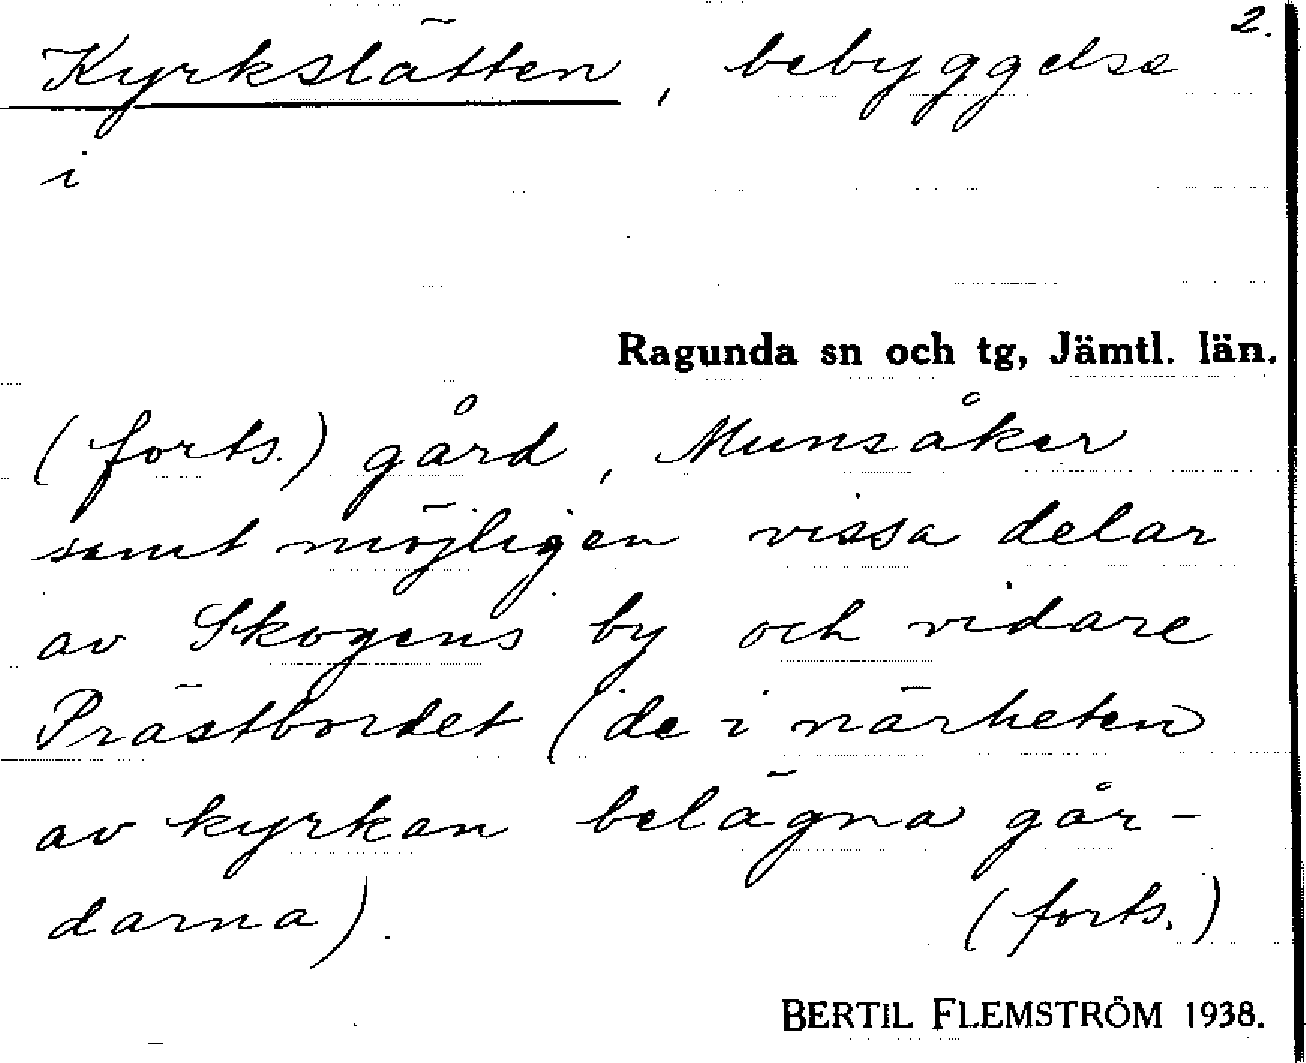 2.
Kyrkslätten, bebyggelse
i
Ragunda sn och tg, Jämtl. län.
(forts.) gård, Munsåker
samt möjligen vissa delar
av Skogens by och vidare
Prästbordet (de i närheten
av kyrkan belägna går-
darna). (forts.)
BERTIL FLEMSTRÖM 1938.